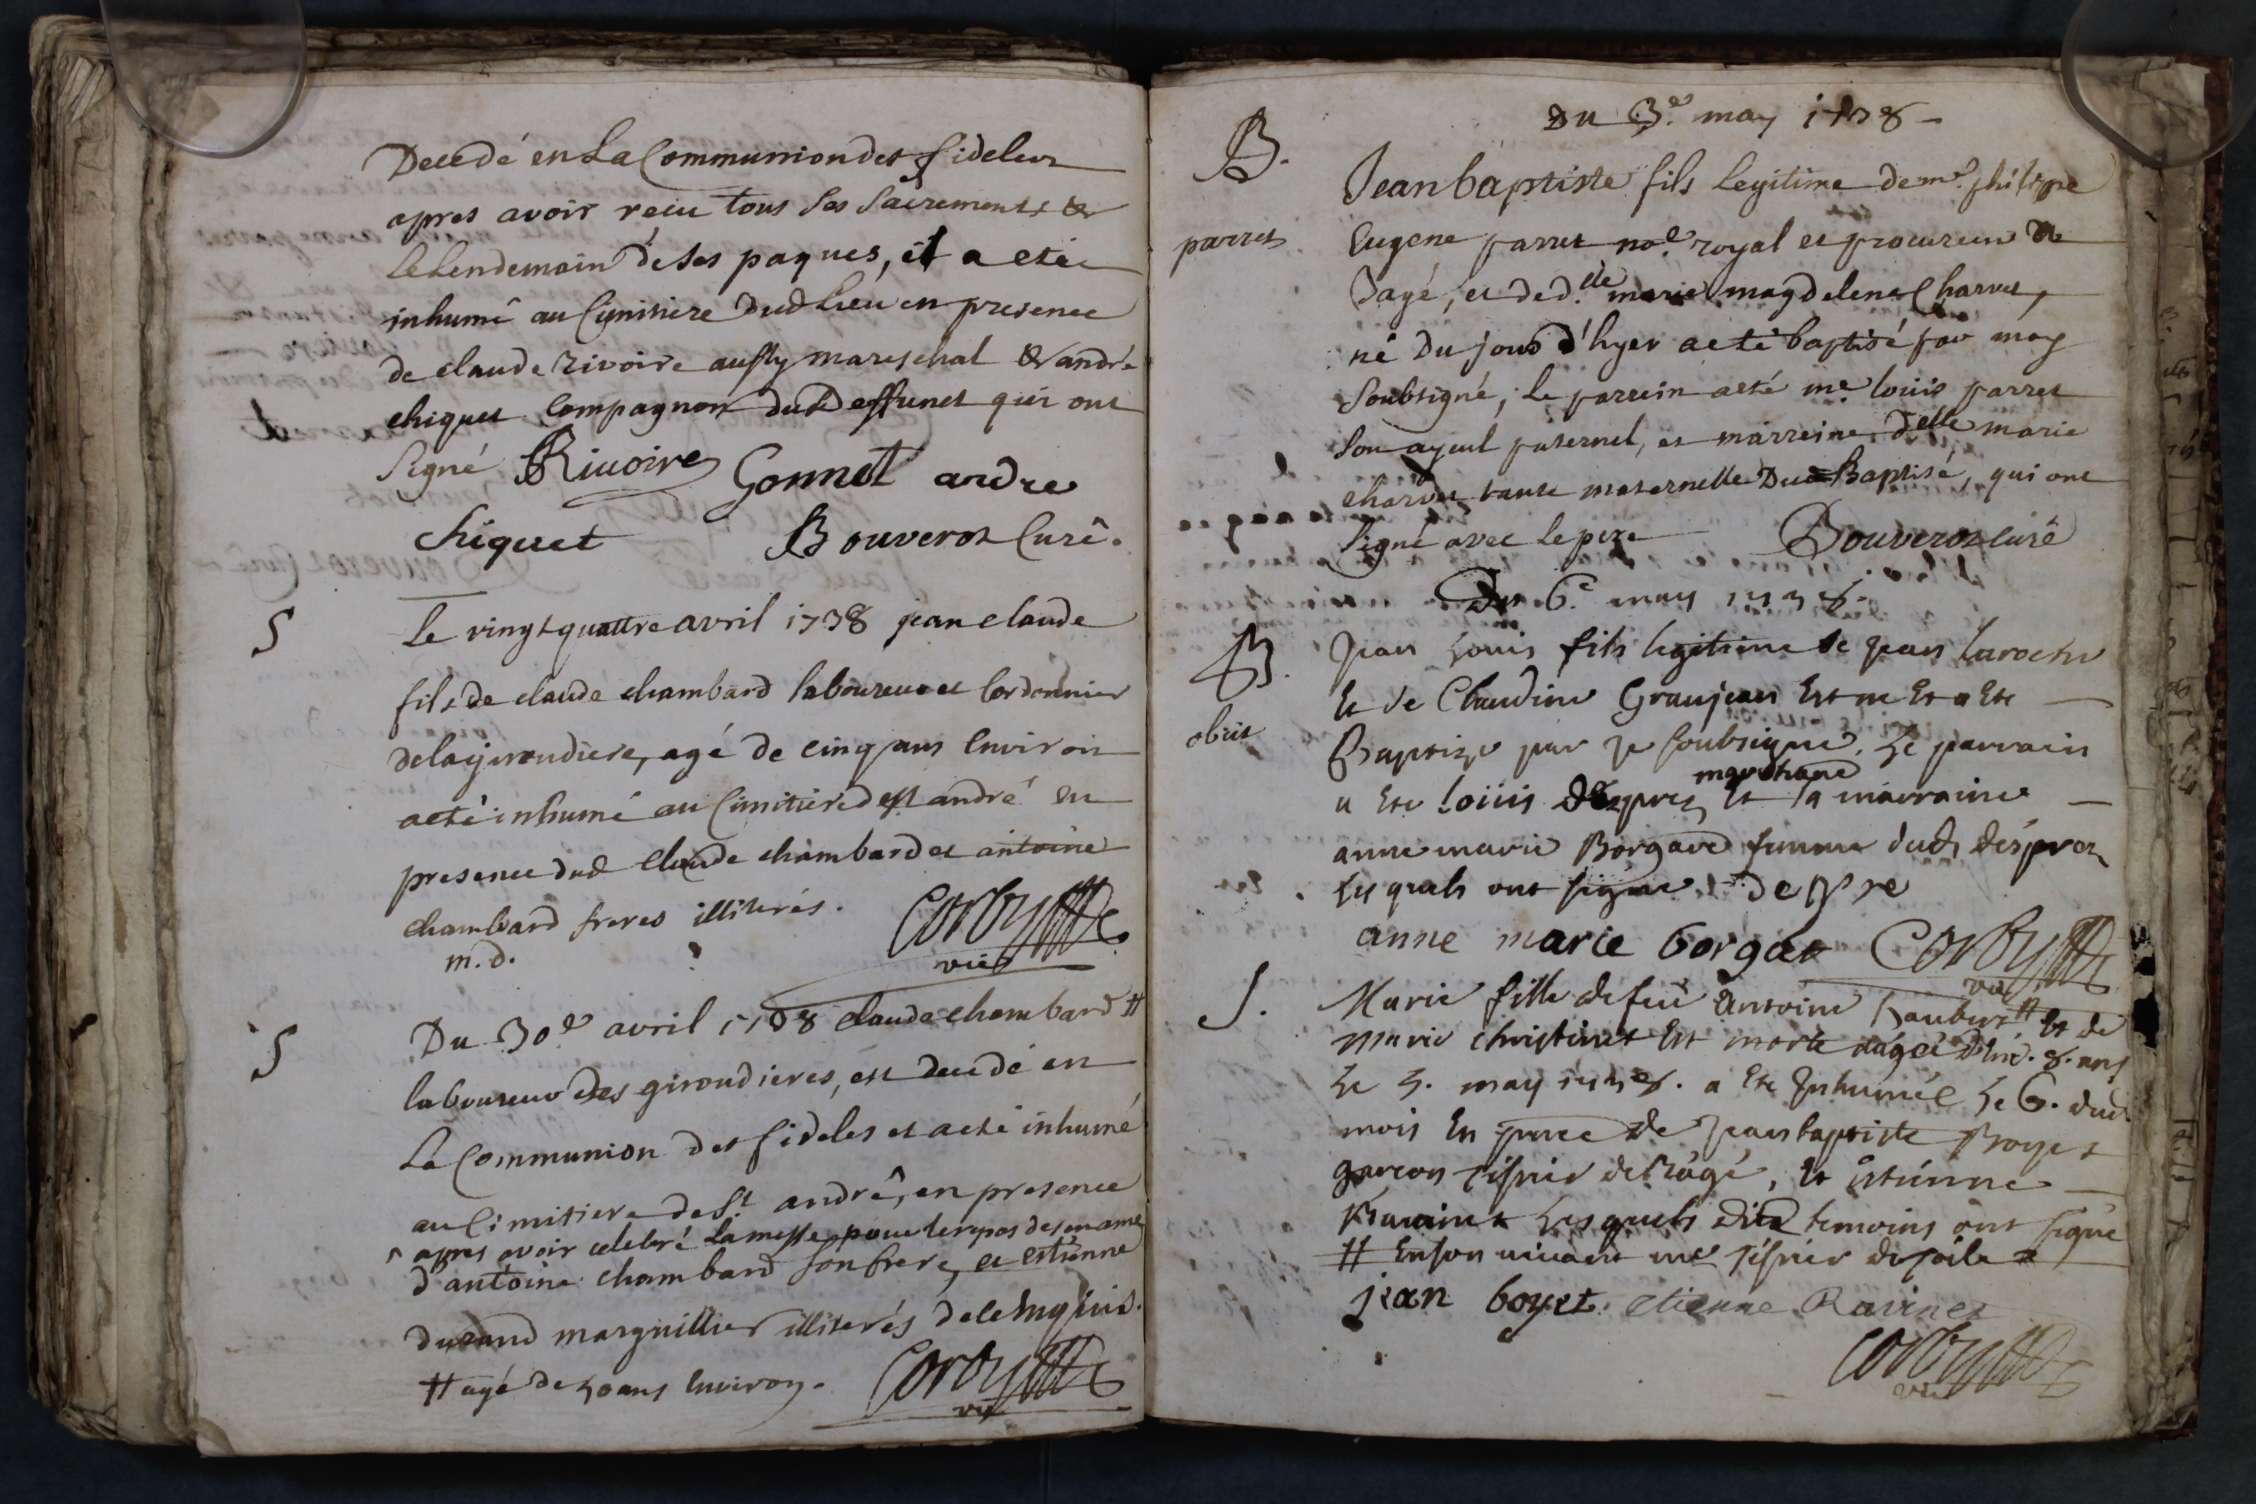 Decedé en La Communion des fideles
apres avoir recu tous ses sacrements &
le Lendemain de ses paques, il a eté
inhumé au Cymitiere dud Lieu en presence
de claude rivoire aussy mareschal & andré
chiquet compagnon dud deffunct qui ont
signé Riuoire Gonnet andre
Chiquet Bouverot Curé.
S
Le vingt quattre avril 1738 jean claude
fils de claude chambard laboureur et Cordonnier
de la girondiere, agé de cinq ans Environ
a eté inhumé au Cimitiere de st andré en
presence dud Claude chambard et antoine
chambard freres illiterés. Corby
m.d. vic
S
Du 30e avril 1738 claude chambard #
laboureur des girondieres, est decedé en
La Communion des fideles et a eté inhumé
au Cimitiere de St andré, en presence
^ apres avoir celebré La messe pour le repos de son ame
d'antoine chambard son frere, et estienne
durand marguillier illiterés de ce Enquis.
# agé de 50 ans Environ. Corby
vic
Du 3e may 1738 -
B.
parret
Jean baptiste fils Legitime de me philippe
Eugene parret nore royal et procureur de
Bagé, et de dlle marie magdelene Charvet,
né Du jour d'hyer a eté baptisé par moy
soubsigné, le parrein a eté me louis parret
son ayeul paternel, et marreine delle marie
charvet tante maternelle Dud Baptisé, qui ont
signé avec Le pere Bouverot curé
Du 6e may 1738.
B.
obiit
Jean Louis fils legitime de Jean Laroche
Et de Claudine Granjean Est ne Et a Ete
Baptize par Je soubsigne. Le parrain
marchand
a Ete loüis desprez Et la marraine
anne marie Borgard femme dud. desprez
Lesquels ont signe. depre
anne marie borgat Corby
vic
S.
Marie fille de feü Antoine # Et de
Marie christinet Est morte aagée d'Env. 8. ans
Le 5. may 1738. a Ete Inhumée Le 6. dud.
mois En pnce de Jean baptiste Boyet
garcon tisnier de Bagé, Et Etienne
Ravinet Lesquels dits temoins ont signe
# En son vivant me tisnier de toile
jean boyet. etienne Ravinet
Corby
vic